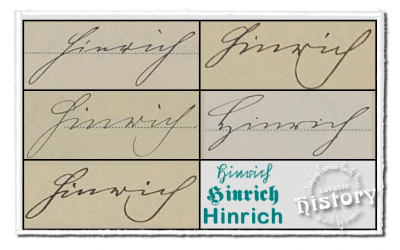 Hinrich
Hinrich
Hinrich
Hinrich
Hinrich
Hinrich
Hinrich
Hinrich
History